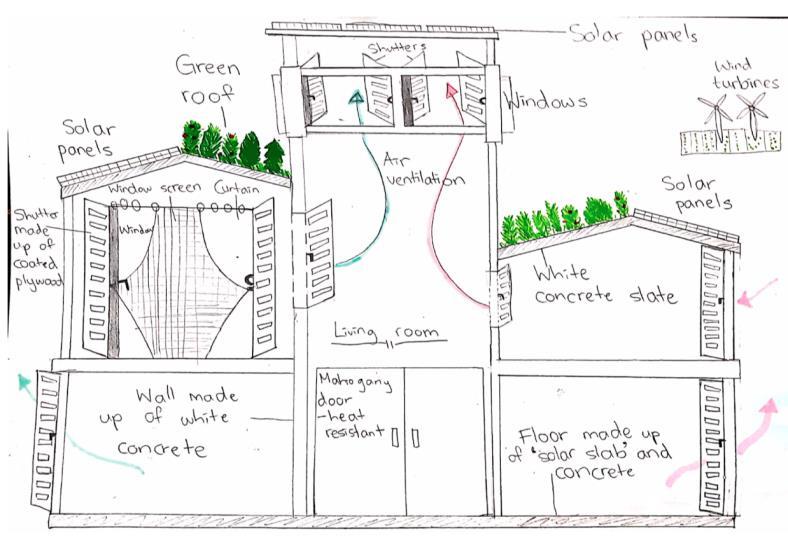 Solar panels
Shutters
Green
roof
Wind
turbines
Windows
Solar
panels
Air
ventilation
Window screen
Curtain
Solar
panels
Shutter
made
up of
coated
plywood
Window
White
concrete slate
Living room
Mahogany
door
-heat
resistant
Wall made
up of white
concrete
Floor made up
of 'solar slab' and
concrete